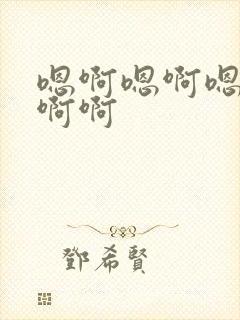 嗯啊嗯啊嗯
啊啊
鄧希賢